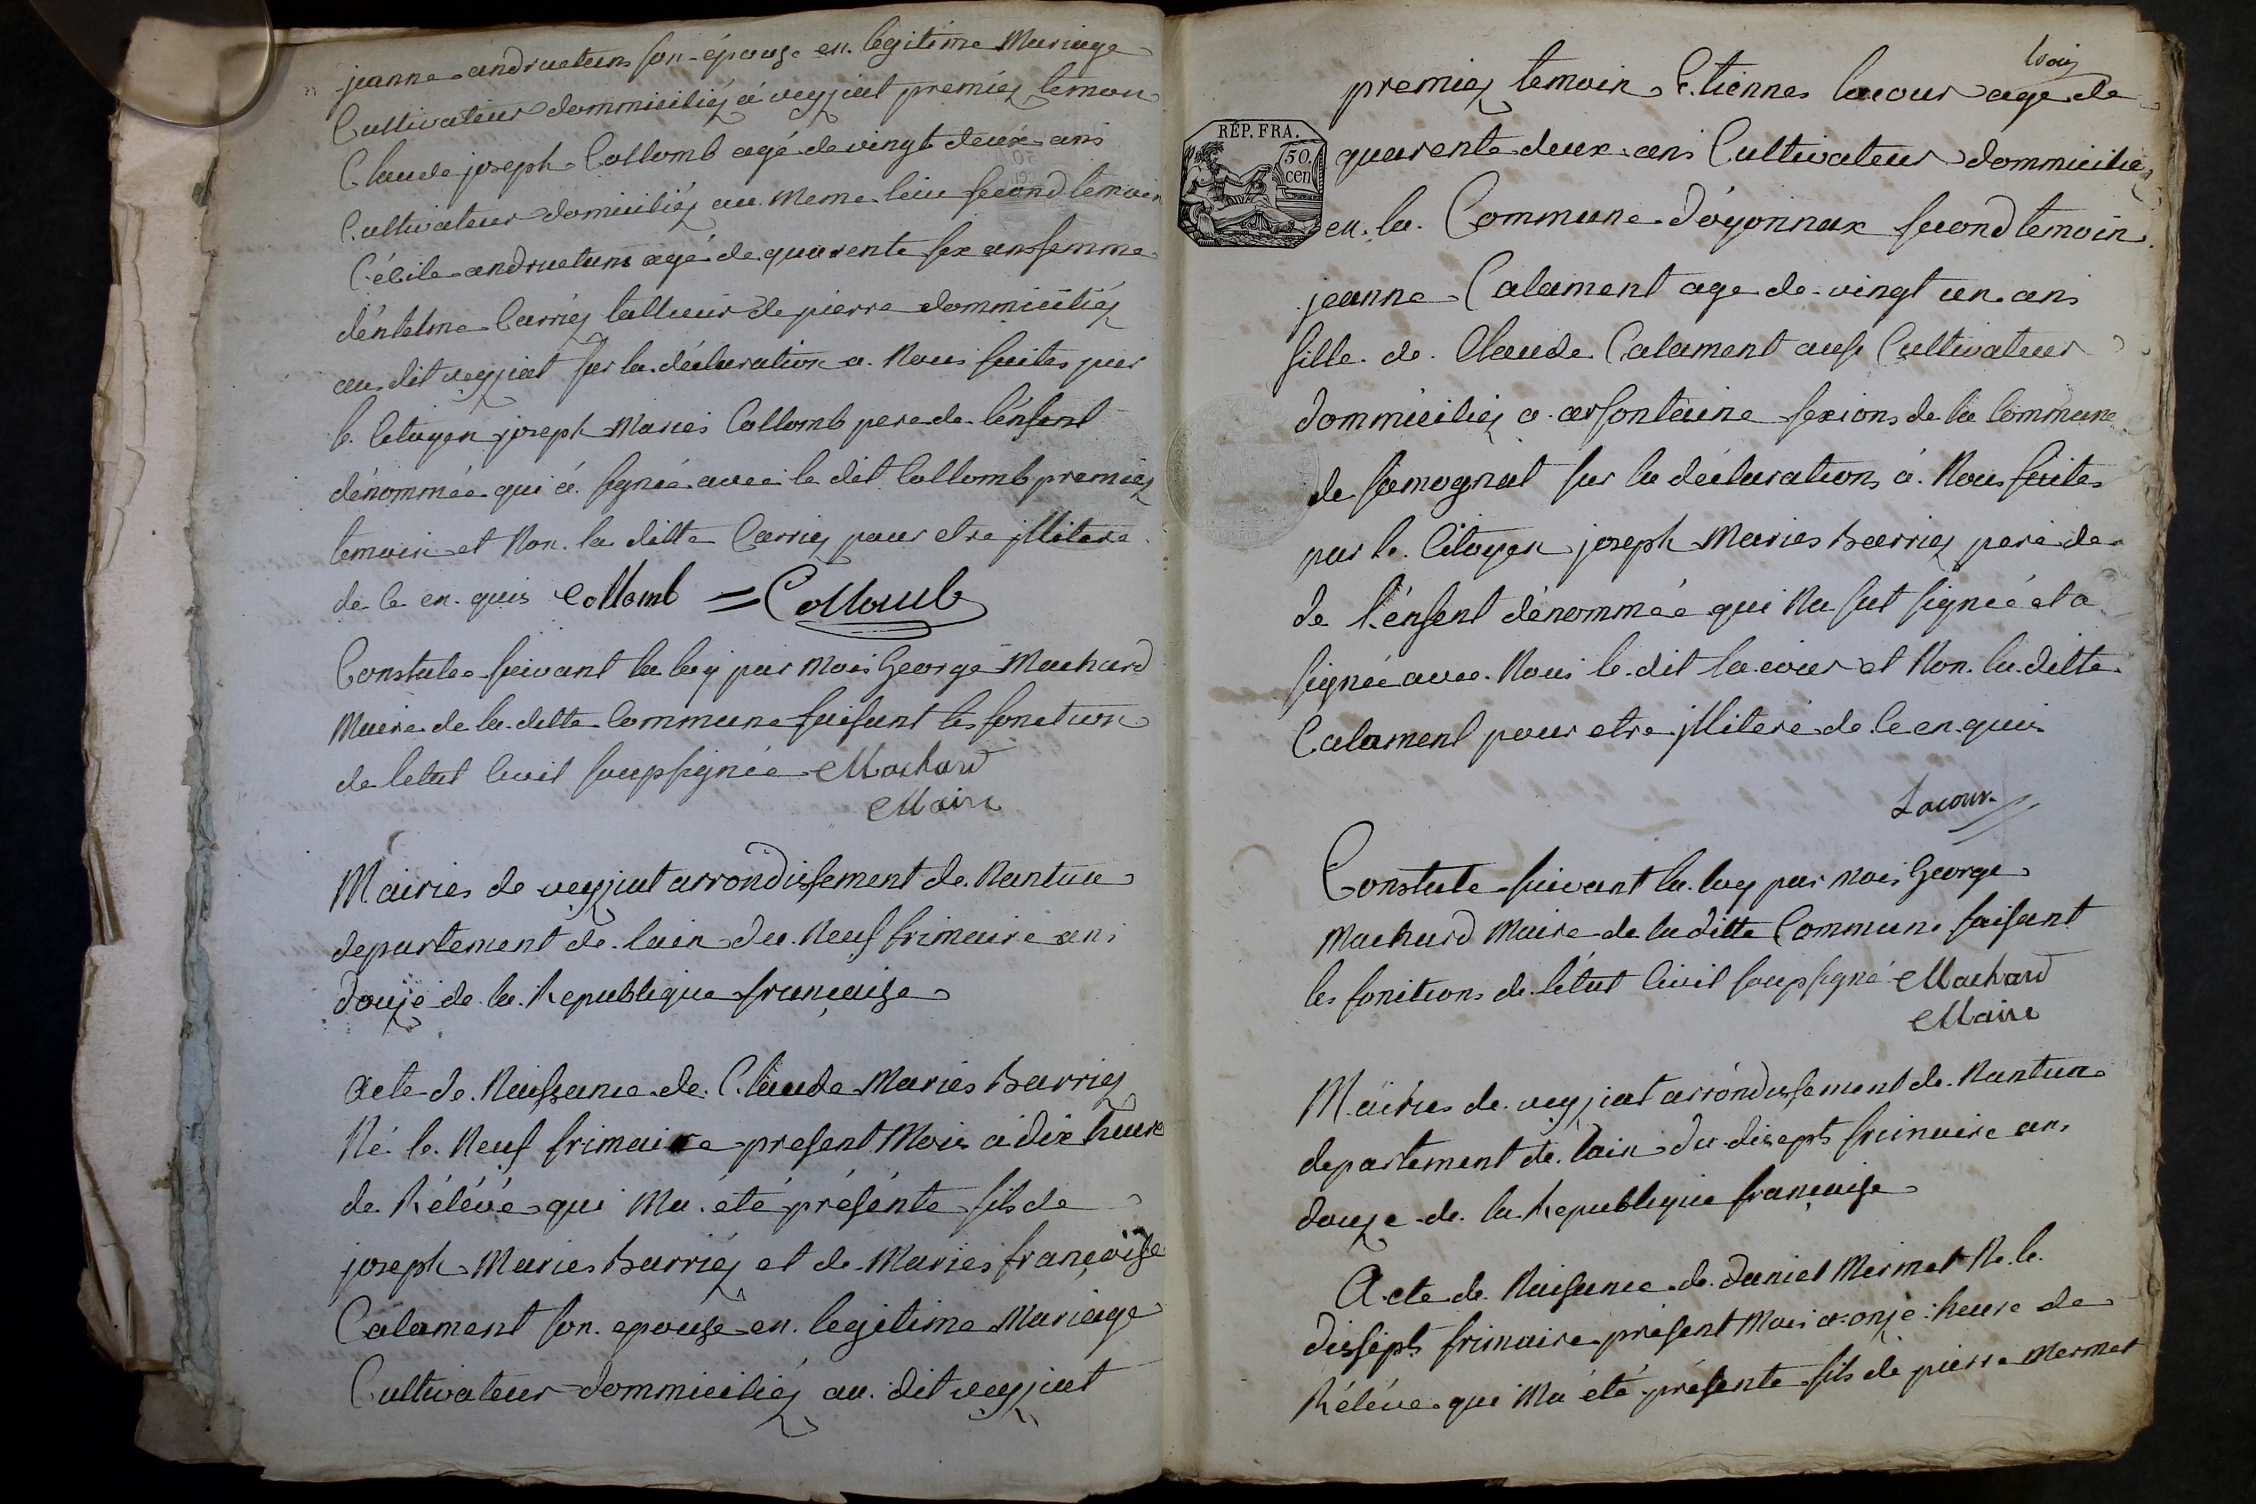 jeanne andruetans son épouse en légitime Mariage
Cultivateur dommiciliéz a veyziat premiéz temoin
Claude joseph Collomb agé de vingt deux ans
Cultivateur domiciliéz au meme leiu second temoin
Cécile andruetans agé de quarente six ans femme
déntelme Carriéz tallieur de pierre dommiciliéz
au dit veyziat sur la déclaration a Nous faites par
le Citoyen joseph Maries Collomb pere de lénfent
dénommée qui á signée avec le dit Collomb premiéz
temoin et Non la ditte Carriéz pour etre jllitere
de ce en quis Collomb = Collomb
Constatee suivant la loy par mois George Machard
Maire de la ditte Commune faisant les fonction
de letat Civil soupsignée Machard
Maire
Mairies de veyziat arrondissement de Nantua
departement de lain du Neuf frimaire ans
douze de la Republique françaize
Acte de Naissance de Claude Maries Barriéz
Né le Neuf frimaire present Mois a dix heure
de Rélévé qui Ma été présénte fils de
joseph Maries Barriéz et de Maries françoise
Calament son epouze en legitime Mariage
Cultivateur dommiciliéz au dit veyziat
premiéz temoin Etiennes lacour age de
quarente deux ans Cultivateur dommiciliéz
en la Commune d'oyonnax second temoin
RÉP. FRA.
50
cen
jeanne Calament age de vingt un ans
fille de Claude Calament ausi Cultivateur
dommiciliéz a arfontaine sexions de la Commune
de samognat sur la déclarations á Nous faites
par le Citoyen joseph Maries Barriéz pere de
de l'énfent dénommée qui Na sut signée et a
signée avec Nous le dit lacour et Non la ditte
Calament pour etre jllitere de ce en quis
Lacour
Constate suivant la loy par mois George
Machard Maire de la ditte Commune faisant
les fonctions de létat Civil soupsigné Machard
Maire
Mairies de veyziat arrondissement de Nantua
departement de lain du disepts frimaire ans
douze de la Republique française
Acte de Naisance de daniel Mermet Ne le
dissépts frimaire présent Mois a onze heure de
Réléve qui Ma été présente fils de pierre Mermet